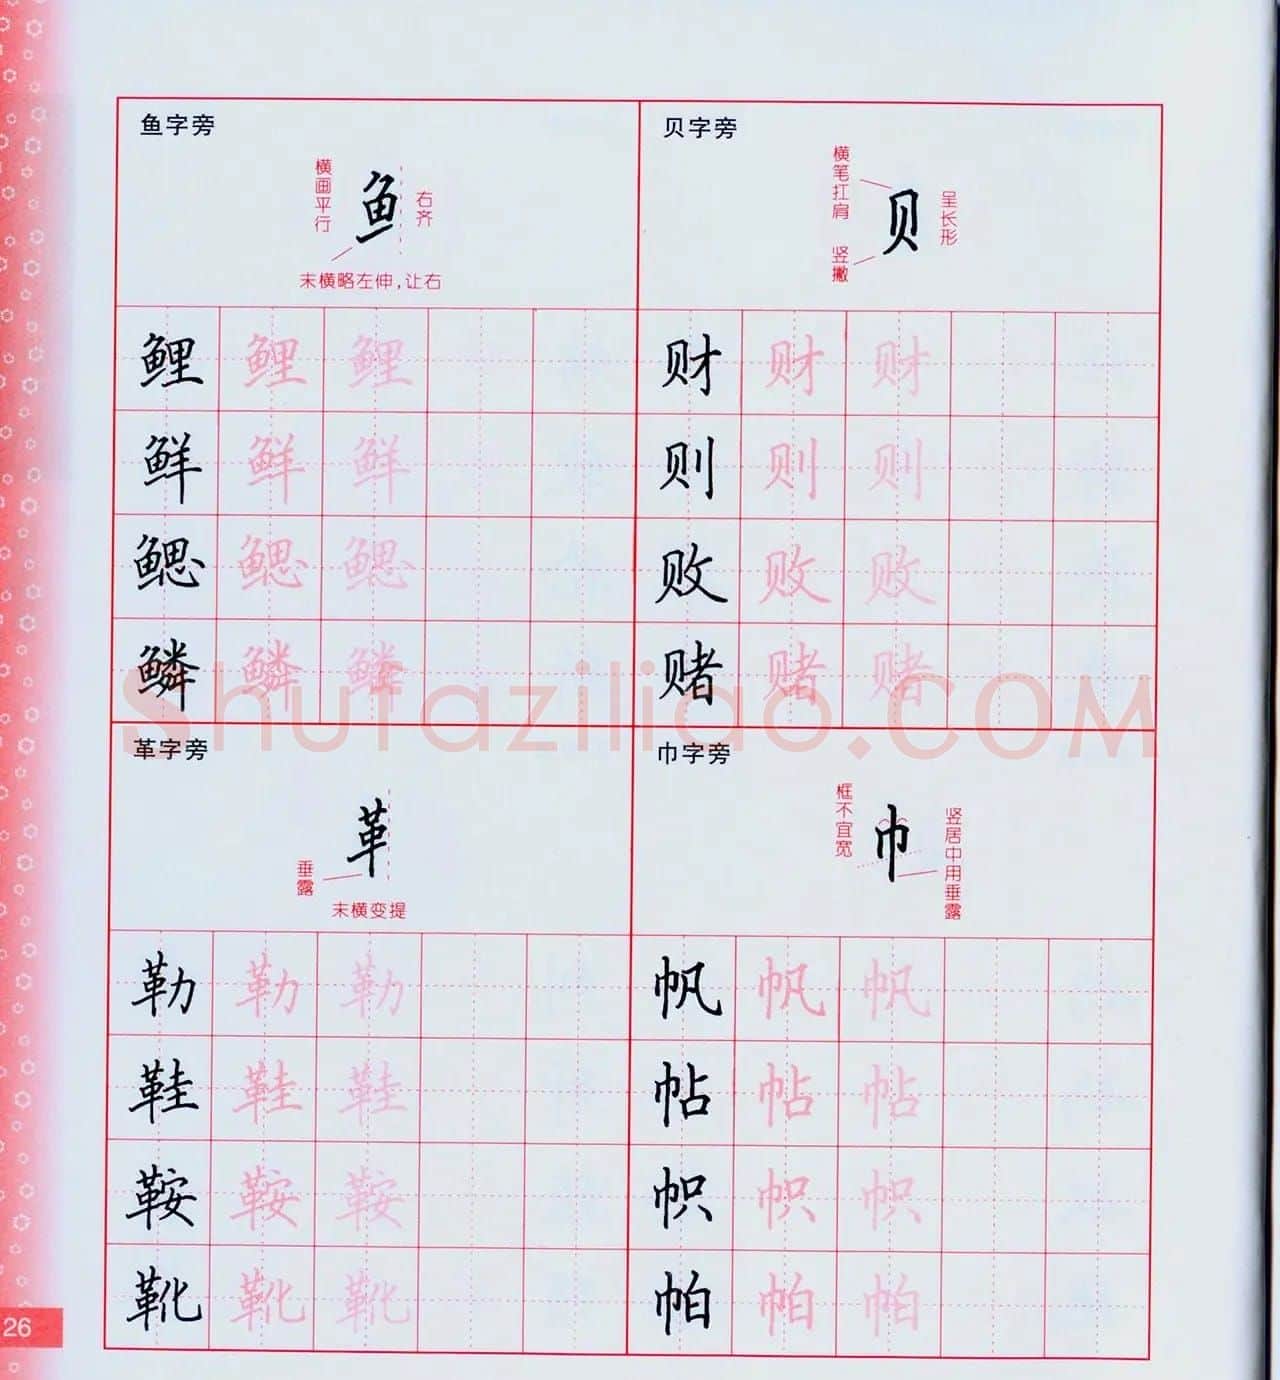 鱼字旁
横画平行
鱼
右齐
末横略左伸,让右
鲤 鲤 鲤
鲜 鲜 鲜
鳃 鳃 鳃
鳞 鳞 鳞
贝字旁
横笔扛肩
贝
呈长形
竖撇
财 财 财
则 则 则
败 败 败
赌 赌 赌
shufaziliao.COM
革字旁
革
垂露
末横变提
勒 勒 勒
鞋 鞋 鞋
鞍 鞍 鞍
靴 靴 靴
巾字旁
框不宜宽
巾
竖居中用垂露
帆 帆 帆
帖 帖 帖
帜 帜 帜
帕 帕 帕
26